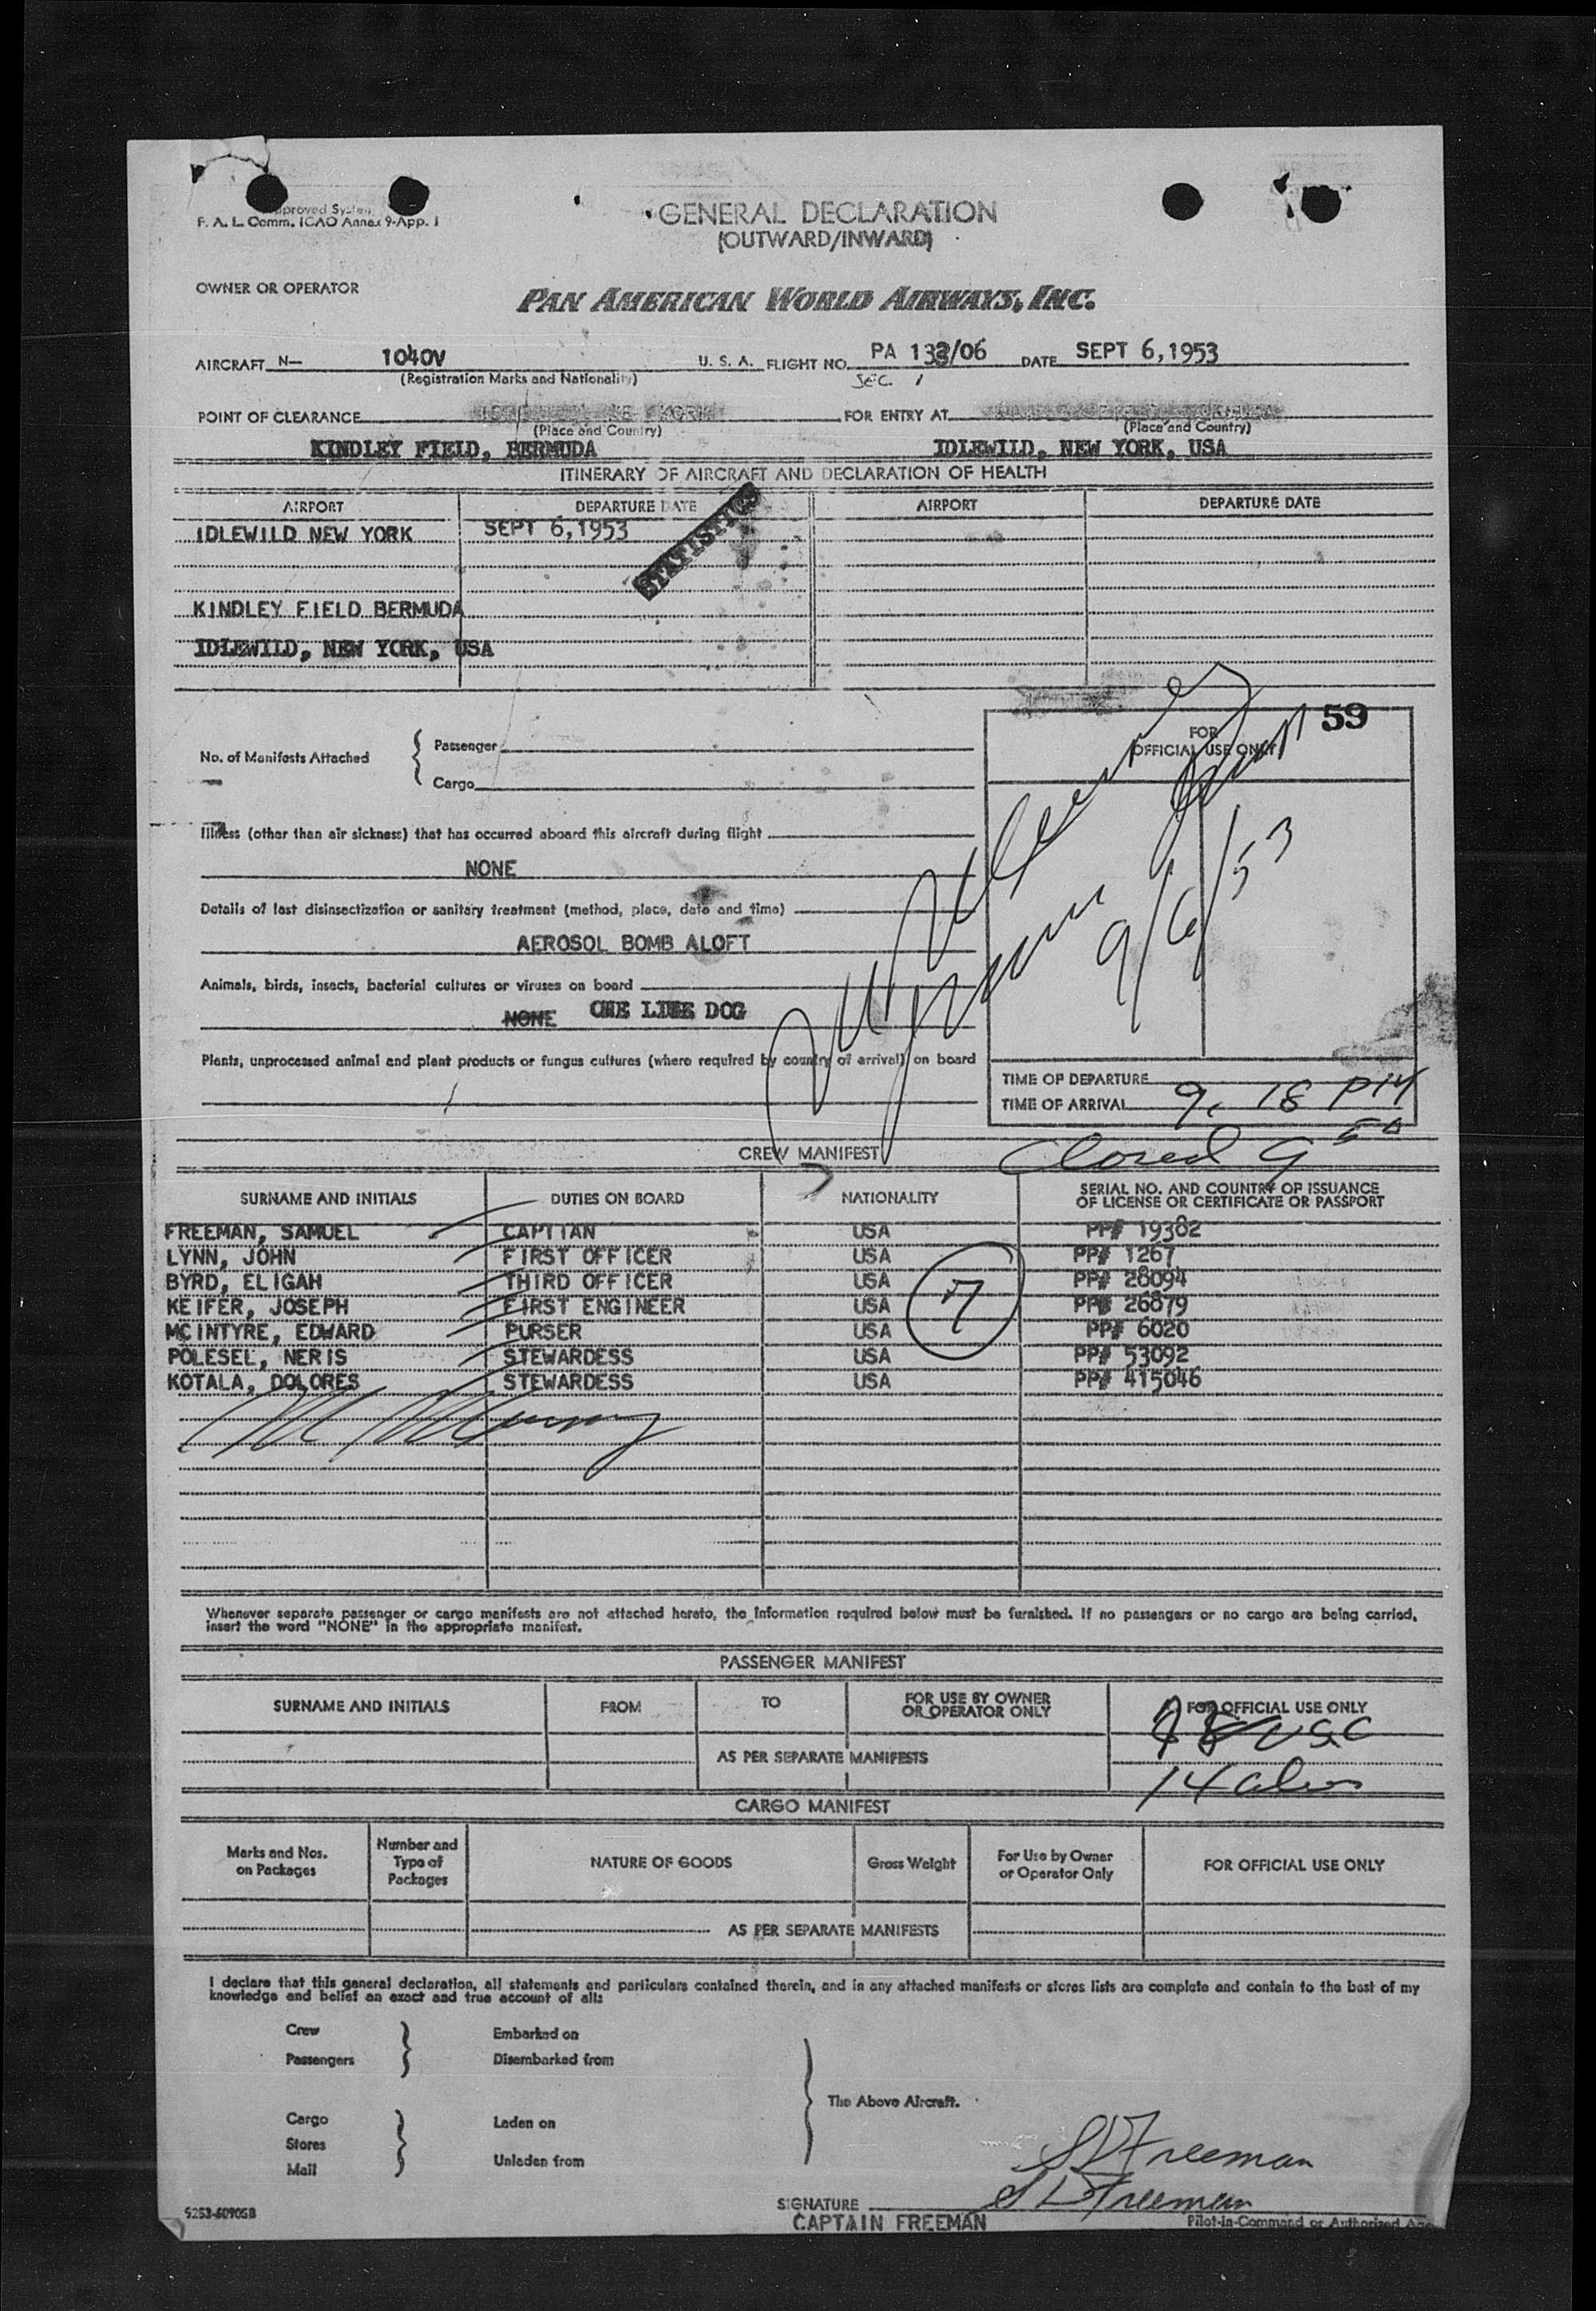 proved System
F. A. L. Comm. ICAO Annex 9-App. 1
GENERAL DECLARATION
(OUTWARD/INWARD)
OWNER OR OPERATOR
PAN AMERICAN WORLD AIRWAYS, INC.
AIRCRAFT N— 1040V U. S. A. FLIGHT NO. PA 132/06 DATE SEPT 6,1953
(Registration Marks and Nationality) SEC. 1
POINT OF CLEARANCE FOR ENTRY AT
(Place and Country) (Place and Country)
KINDLEY FIELD, BERMUDA IDLEWILD, NEW YORK, USA
ITINERARY OF AIRCRAFT AND DECLARATION OF HEALTH
AIRPORT DEPARTURE DATE AIRPORT DEPARTURE DATE
IDLEWILD NEW YORK SEPT 6,1953
STATISTICS
KINDLEY FIELD BERMUDA
IDLEWILD, NEW YORK, USA
59
FOR
OFFICIAL USE ONLY
No. of Manifests Attached { Passenger
Cargo
Illness (other than air sickness) that has occurred aboard this aircraft during flight
NONE
9/6/53
Details of last disinsectization or sanitary treatment (method, place, date and time)
AEROSOL BOMB ALOFT
Animals, birds, insects, bacterial cultures or viruses on board
NONE ONE LIVE DOG
Plants, unprocessed animal and plant products or fungus cultures (where required by country of arrival) on board
TIME OF DEPARTURE
TIME OF ARRIVAL 9. 18 PM
Closed 9 50
CREW MANIFEST
SURNAME AND INITIALS DUTIES ON BOARD NATIONALITY SERIAL NO. AND COUNTRY OF ISSUANCE
OF LICENSE OR CERTIFICATE OR PASSPORT
FREEMAN, SAMUEL CAPTIAN USA PP# 19382
LYNN, JOHN FIRST OFFICER USA PP# 1267
BYRD, ELIGAH THIRD OFFICER USA PP# 28094
KEIFER, JOSEPH FIRST ENGINEER USA PP# 26879
MCINTYRE, EDWARD PURSER USA PP# 6020
POLESEL, NERIS STEWARDESS USA PP# 53092
KOTALA, DOLORES STEWARDESS USA PP# 415046
7
Whenever separate passenger or cargo manifests are not attached hereto, the information required below must be furnished. If no passengers or no cargo are being carried,
insert the word "NONE" in the appropriate manifest.
PASSENGER MANIFEST
SURNAME AND INITIALS FROM TO FOR USE BY OWNER
OR OPERATOR ONLY FOR OFFICIAL USE ONLY
USC
AS PER SEPARATE MANIFESTS
14 aliens
CARGO MANIFEST
Marks and Nos.
on Packages Number and
Type of
Packages NATURE OF GOODS Gross Weight For Use by Owner
or Operator Only FOR OFFICIAL USE ONLY
AS PER SEPARATE MANIFESTS
I declare that this general declaration, all statements and particulars contained therein, and in any attached manifests or stores lists are complete and contain to the best of my
knowledge and belief an exact and true account of all:
Crew Embarked on
Passengers Disembarked from
The Above Aircraft.
Cargo Laden on
Stores
Mail Unladen from
S D Freeman
S D Freeman
SIGNATURE
CAPTAIN FREEMAN Pilot-in-Command or Authorized